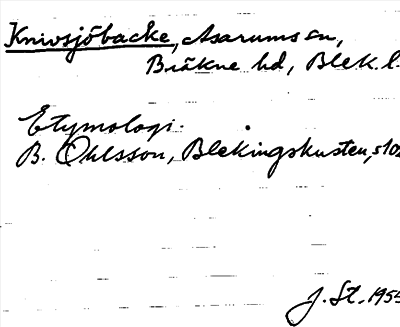 Knivsjöbacke, Asarums sn,
Bräkne hd, Blek. l.
Etymologi:
B. Ohlsson, Blekingskusten, s 102
J. St. 1955